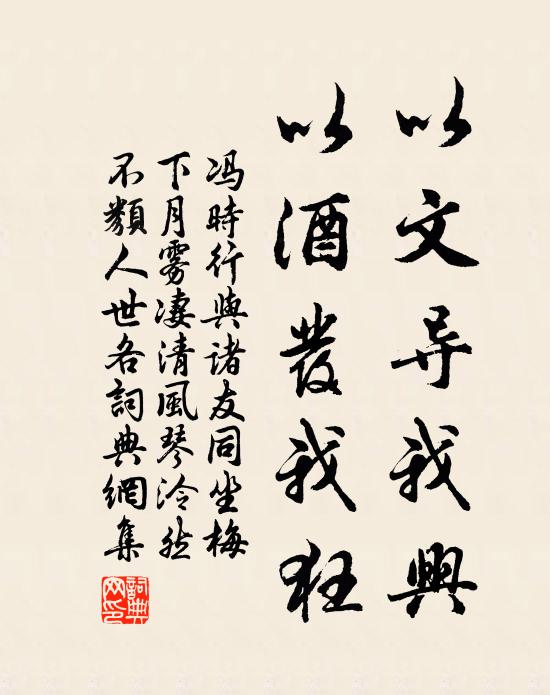 以文导我興
以酒發我狂
冯時行與诸友同坐梅
下月雾凄清風琴泠然
不類人世各詞典網集
詞典网印